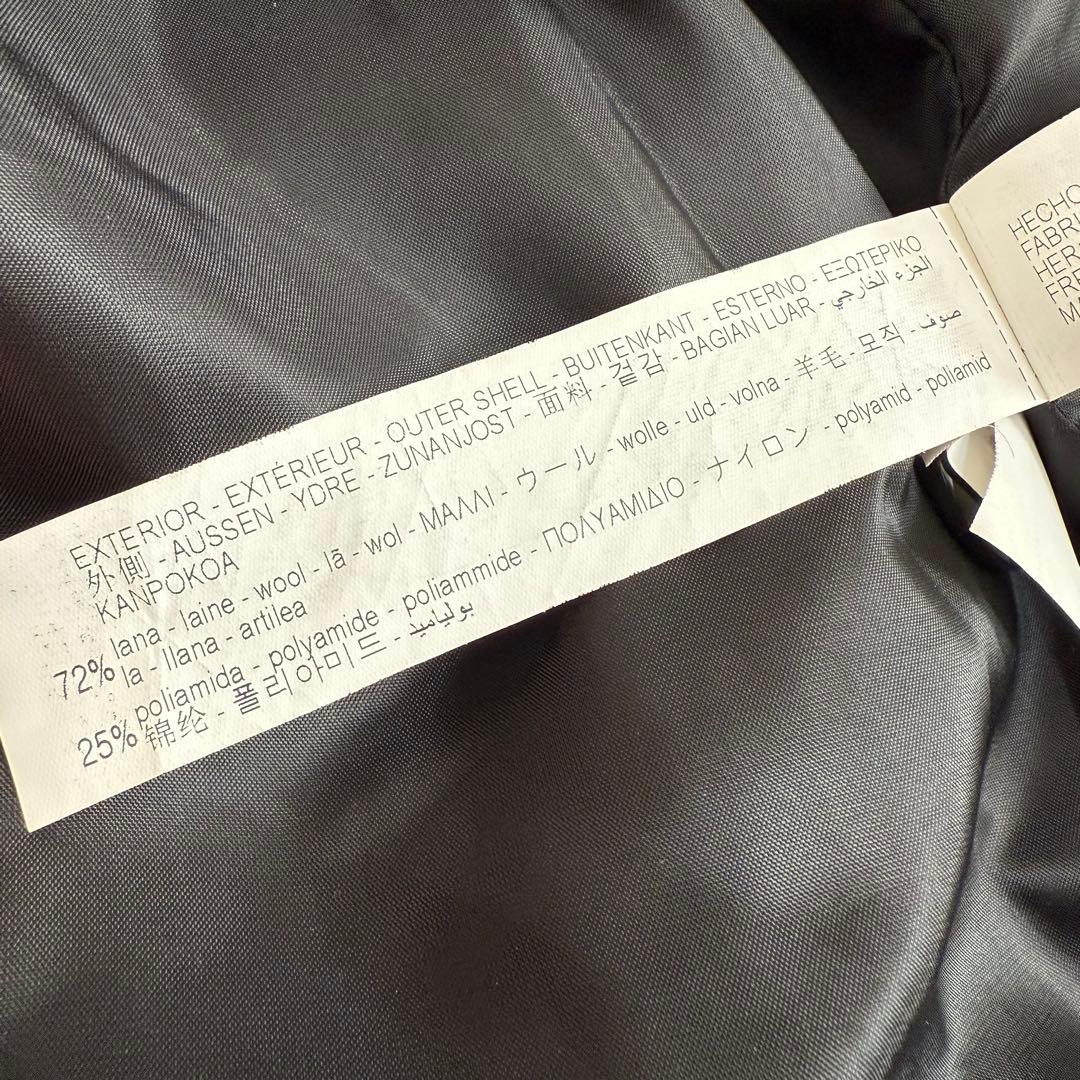 EXTERIOR - EXTÉRIEUR - OUTER SHELL - BUITENKANT - ESTERNO - ΕΞΩΤΕΡΙΚΟ
外側 - AUSSEN - YDRE - ZUNANJOST - 面料 - 겉감 - BAGIAN LUAR - الجزء الخارجي
KANPOKOA
72% lana - laine - wool - lã - wol - ΜΑΛΛΙ - ウール - wolle - uld - volna - 羊毛 - 모직 - صوف
la - llana - artilea
25% poliamida - polyamide - poliammide - ΠΟΛΥΑΜΙΔΙΟ - ナイロン - polyamid - poliamid
锦纶 - 폴리아미드 - بولياميد
HECHO
FABRI
HER
FRE
MA